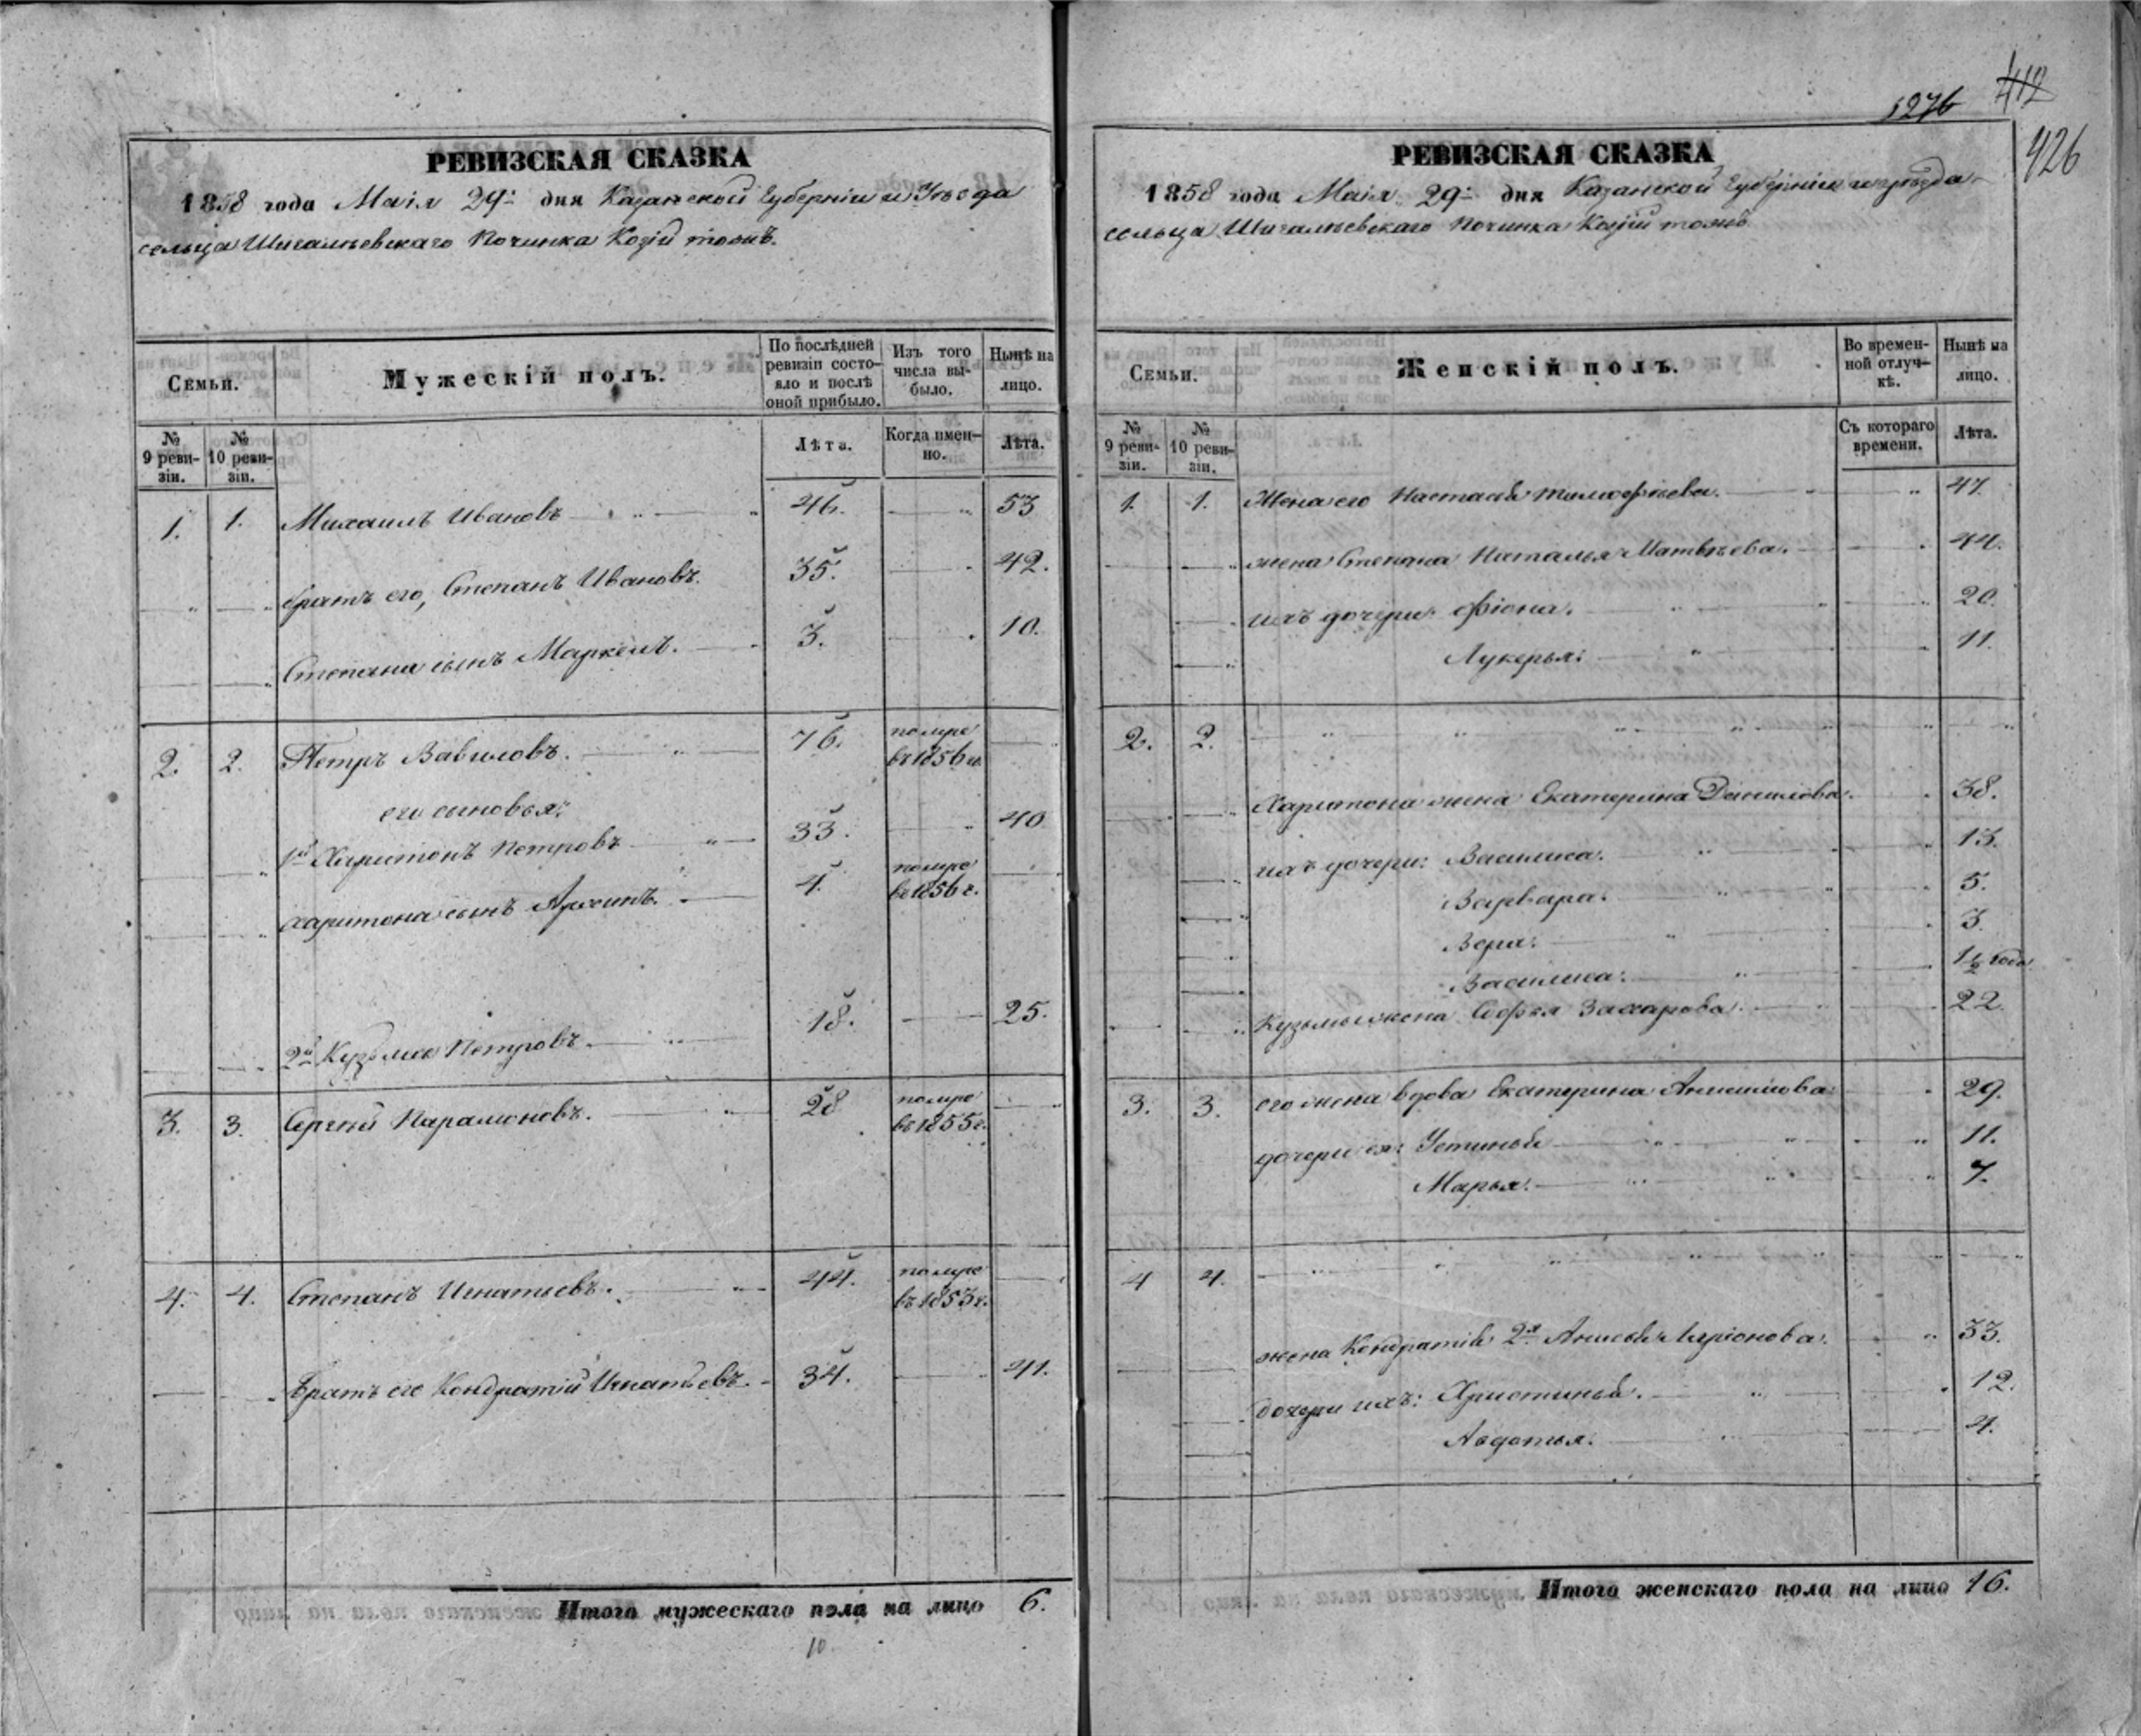 РЕВИЗСКАЯ СКАЗКА
1858 года Маія 29: дня Казанской Губерніи и Уѣзда
сельца Шигалѣевскаго Починка Козій тожъ.
Семьи.
Мужескій полъ.
По послѣдней ревизіи состояло и послѣ оной прибыло.
Изъ того числа выбыло.
Нынѣ на лицо.
№ 9 ревизіи.
№ 10 ревизіи.
Лѣта.
Когда именно.
Лѣта.
1. 1. Михаилъ Ивановъ 46. 53
братъ его, Степанъ Ивановъ. 35. 42.
Степана сынъ Маркелъ. 3. 10.
2. 2. Петръ Вавиловъ. 76. помре въ 1856 г.
его сыновья:
1й Харитонъ Петровъ 33. 40
Харитона сынъ Архипъ. 4. помре въ 1856 г.
2й Кузьма Петровъ. 18. 25.
3. 3. Сергей Парамоновъ. 28 помре въ 1855 г.
4. 4. Степанъ Игнатьевъ. 44. помре въ 1853 г.
братъ его Кондратій Игнатьевъ. 34. 41.
Итого мужескаго пола на лицо 6.
10.
1276
412
426
РЕВИЗСКАЯ СКАЗКА
1858 года Маія 29: дня Казанской Губерніи и уѣзда
сельца Шигалѣевскаго Починка Козій тожъ
Семьи.
Женскій полъ.
Во временной отлучкѣ.
Нынѣ на лицо.
№ 9 ревизіи.
№ 10 ревизіи.
Съ котораго времени.
Лѣта.
1. 1. Жена его Настасья Тимофѣева. 47.
жена Степана Наталья Матвѣева. 44.
ихъ дочери: Фіона. 20.
Лукерья: 11.
2. 2.
Харитона жена Екатерина Данилова. 38.
ихъ дочери: Василиса. 13.
Варвара. 5.
Вера. 3.
Василиса. 1½ года
Кузьмы жена Софья Захарова. 22
3. 3. его жена вдова Екатерина 29.
дочери ея: Устинья 11.
Марья. 7.
4 4.
жена Кондратія 2я Анисья Ларіонова. 33.
дочери ихъ: Христинья. 12.
Авдотья. 4.
Итого женскаго пола на лицо 16.